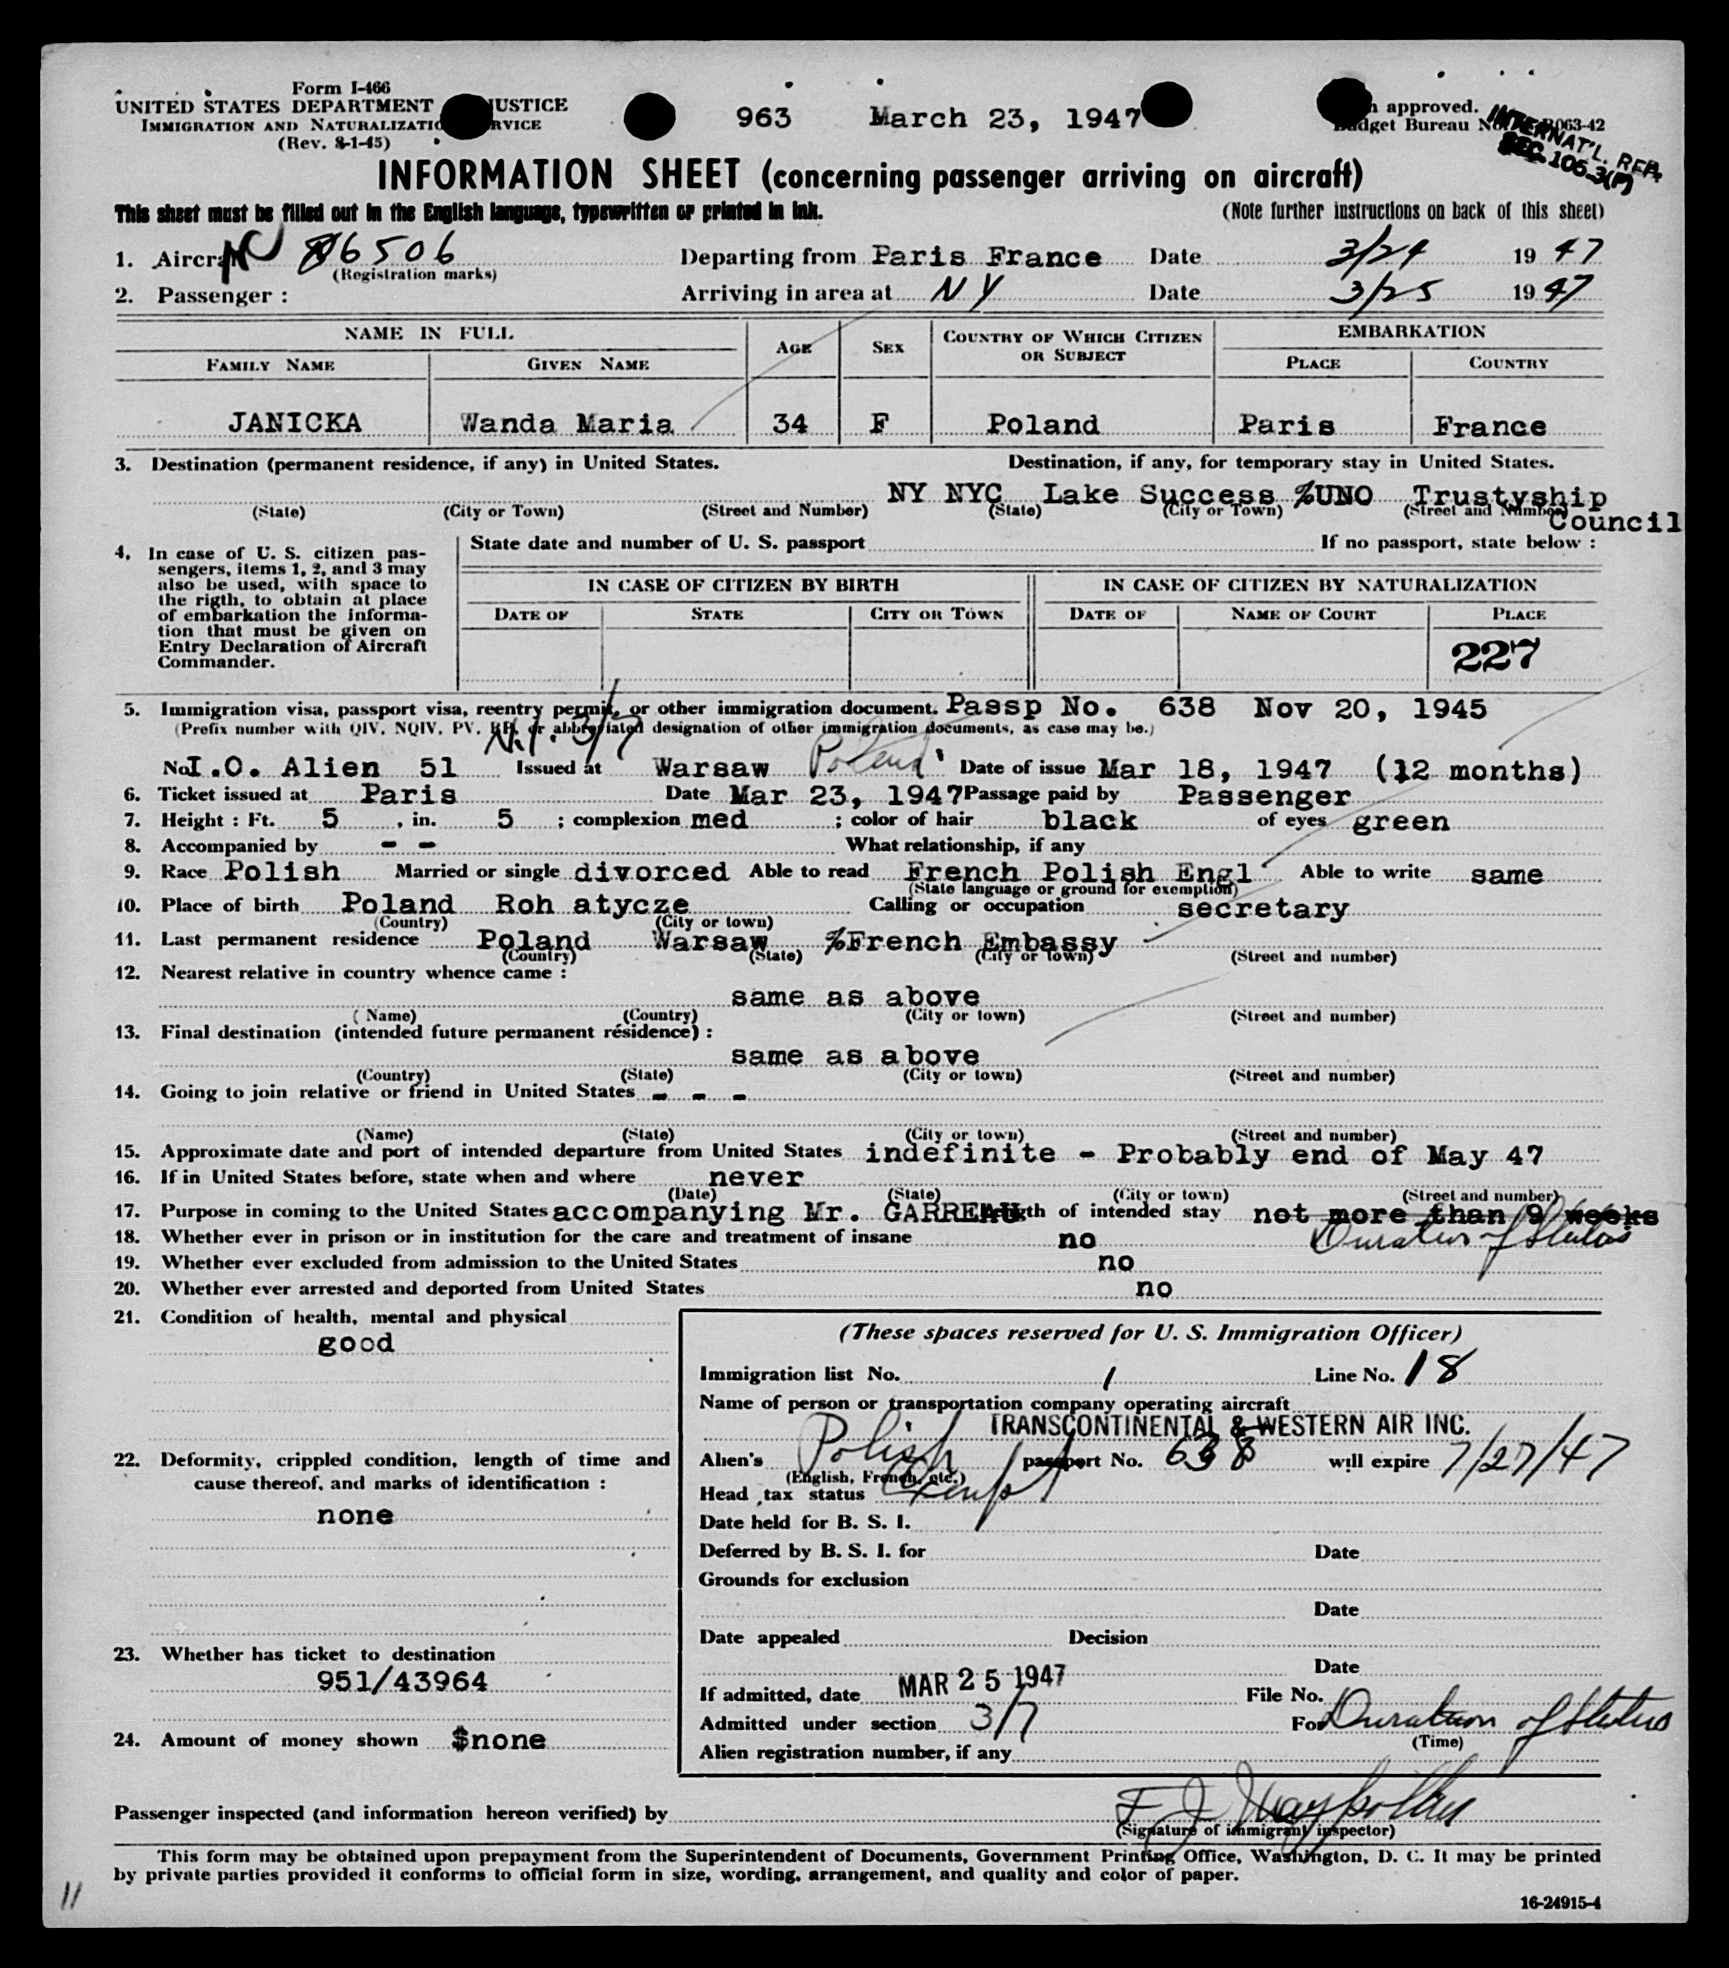 Form I-466
UNITED STATES DEPARTMENT JUSTICE
IMMIGRATION AND NATURALIZATION SERVICE
(Rev. 8-1-45)
963 March 23, 1947
approved.
Budget Bureau No. 063-42
INTERNAT'L. REP.
SEC. 105.3(f7)
INFORMATION SHEET (concerning passenger arriving on aircraft)
This sheet must be filled out in the English language, typewritten or printed in ink. (Note further instructions on back of this sheet)
1. Aircraft NC 86506 Departing from Paris France Date 3/24 1947
(Registration marks)
2. Passenger : Arriving in area at NY Date 3/25 1947
NAME IN FULL AGE SEX COUNTRY OF WHICH CITIZEN OR SUBJECT EMBARKATION
FAMILY NAME GIVEN NAME PLACE COUNTRY
JANICKA Wanda Maria 34 F Poland Paris France
3. Destination (permanent residence, if any) in United States. Destination, if any, for temporary stay in United States.
NY NYC Lake Success %UNO Trustyship
(State) (City or Town) (Street and Number) (State) (City or Town) (Street and Number)
Council
4. In case of U. S. citizen pas-
sengers, items 1, 2, and 3 may
also be used, with space to
the rigth, to obtain at place
of embarkation the informa-
tion that must be given on
Entry Declaration of Aircraft
Commander.
State date and number of U. S. passport If no passport, state below :
IN CASE OF CITIZEN BY BIRTH IN CASE OF CITIZEN BY NATURALIZATION
DATE OF STATE CITY OR TOWN DATE OF NAME OF COURT PLACE
227
5. Immigration visa, passport visa, reentry permit, or other immigration document. Passp No. 638 Nov 20, 1945
(Prefix number with QIV, NQIV, PV, RP, or abbreviated designation of other immigration documents, as case may be.)
N.I. 3/7
No. I.O. Alien 51 Issued at Warsaw Poland Date of issue Mar 18, 1947 (12 months)
6. Ticket issued at Paris Date Mar 23, 1947 Passage paid by Passenger
7. Height : Ft. 5 , in. 5 ; complexion med ; color of hair black of eyes green
8. Accompanied by - - What relationship, if any
9. Race Polish Married or single divorced Able to read French Polish Engl Able to write same
(State language or ground for exemption)
10. Place of birth Poland Roh atycze Calling or occupation secretary
(Country) (City or town)
11. Last permanent residence Poland Warsaw %French Embassy
(Country) (State) (City or town) (Street and number)
12. Nearest relative in country whence came :
same as above
( Name) (Country) (City or town) (Street and number)
13. Final destination (intended future permanent résidence) :
same as above
(Country) (State) (City or town) (Street and number)
14. Going to join relative or friend in United States - - -
(Name) (State) (City or town) (Street and number)
15. Approximate date and port of intended departure from United States indefinite - Probably end of May 47
16. If in United States before, state when and where never
(Date) (State) (City or town) (Street and number)
17. Purpose in coming to the United States accompanying Mr. GARREAU Length of intended stay not more than 9 weeks
Duration of Status
18. Whether ever in prison or in institution for the care and treatment of insane no
19. Whether ever excluded from admission to the United States no
20. Whether ever arrested and deported from United States no
21. Condition of health, mental and physical
good
22. Deformity, crippled condition, length of time and
cause thereof, and marks of identification :
none
23. Whether has ticket to destination
951/43964
24. Amount of money shown $none
(These spaces reserved for U. S. Immigration Officer)
Immigration list No. 1 Line No. 18
Name of person or transportation company operating aircraft
TRANSCONTINENTAL & WESTERN AIR INC.
Alien's Polish passport No. 638 will expire 7/27/47
(English, French, etc.)
Head tax status Exempt
Date held for B. S. I.
Deferred by B. S. I. for Date
Grounds for exclusion
Date
Date appealed Decision
Date
If admitted, date MAR 25 1947 File No.
Admitted under section 3/7 For Duration of Status
(Time)
Alien registration number, if any
Passenger inspected (and information hereon verified) by F J
(Signature of immigrant inspector)
This form may be obtained upon prepayment from the Superintendent of Documents, Government Printing Office, Washington, D. C. It may be printed
by private parties provided it conforms to official form in size, wording, arrangement, and quality and color of paper.
11
16-24915-4